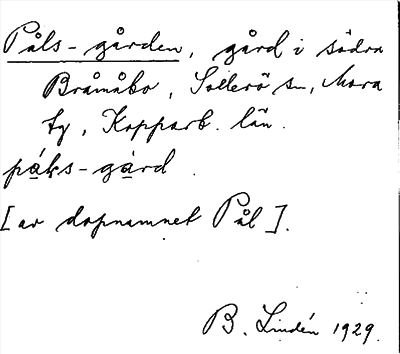 Påls-gården, gård i södra
Bråmåbo, Sollerö sn, Mora
tg, Kopparb. län.
páks-gàrd
[av dopnamnet Pål].
B. Lindén 1929.